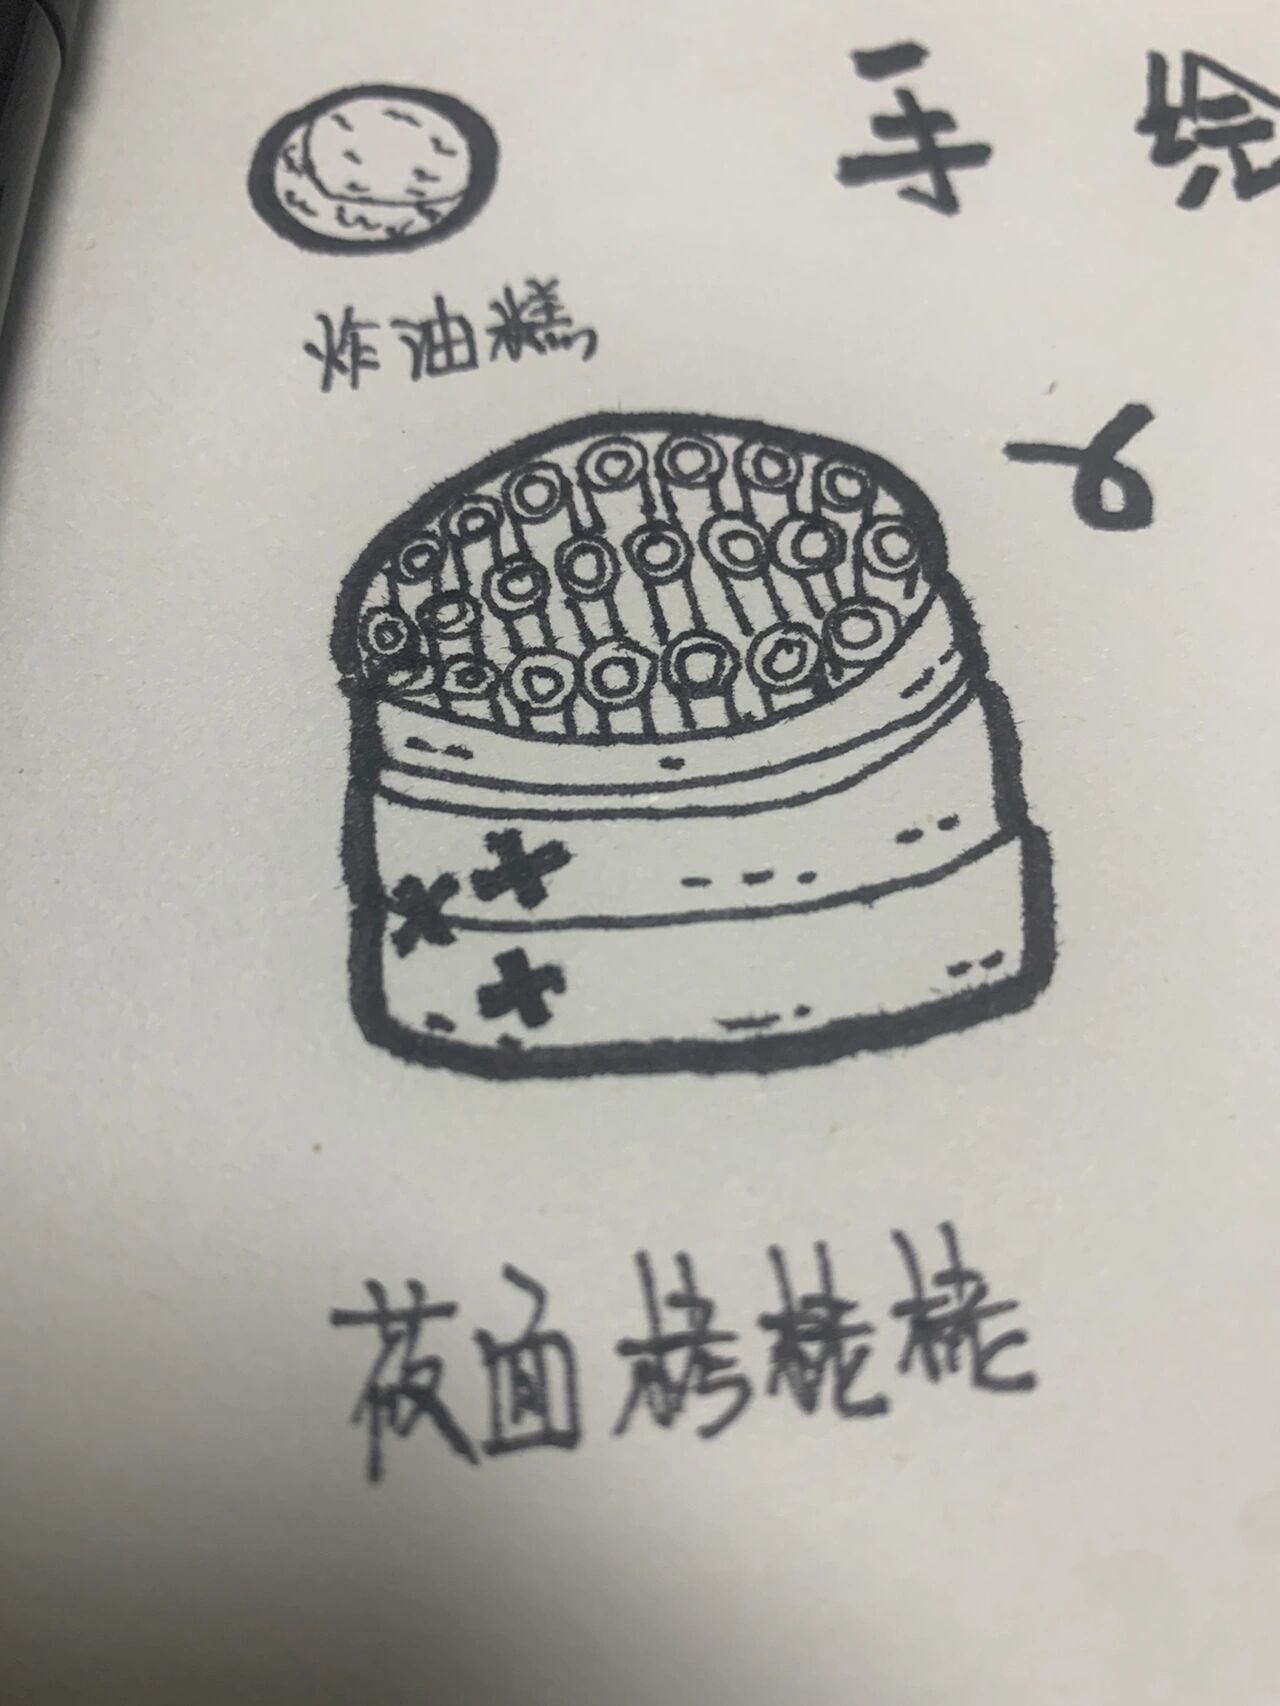 手绘
炸油糕
莜面栲栳栳